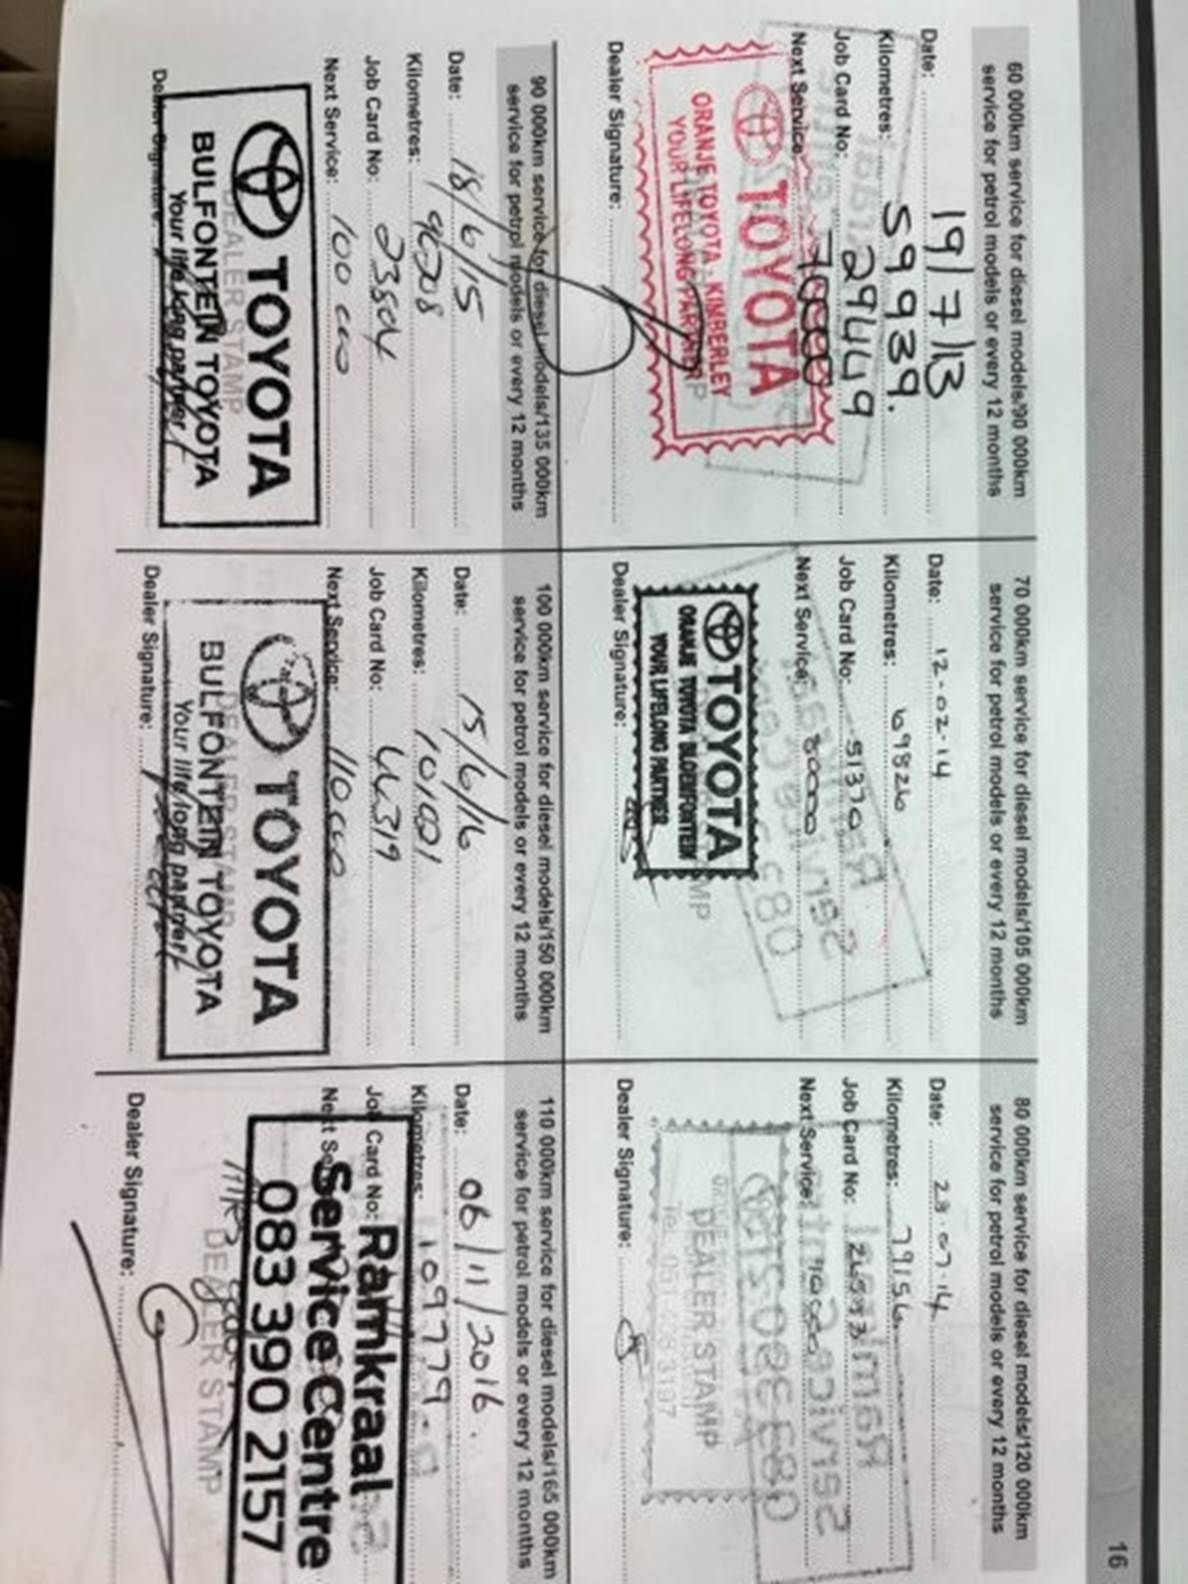 16
60 000km service for diesel models/90 000km
service for petrol models or every 12 months
Date: 19/7/13
Kilometres: 59939.
Job Card No: 29449
Next Service: 70000
TOYOTA
ORANJE TOYOTA - KIMBERLEY
YOUR LIFELONG PARTNER
Dealer Signature:
70 000km service for diesel models/105 000km
service for petrol models or every 12 months
Date: 12.02.14
Kilometres: 69826
Job Card No: 51370
Next Service: 80000
TOYOTA
ORANJE TOYOTA BLOEMFONTEIN
YOUR LIFELONG PARTNER
Dealer Signature:
80 000km service for diesel models/120 000km
service for petrol models or every 12 months
Date: 23.07.14
Kilometres: 79156
Job Card No:
Next Service: 90000
DEALER STAMP
Dealer Signature:
90 000km service for diesel models/135 000km
service for petrol models or every 12 months
Date: 18/6/15
Kilometres: 90208
Job Card No:
Next Service: 100 000
TOYOTA
DEALER STAMP
BULFONTEIN TOYOTA
Your life long partner
Dealer Signature:
100 000km service for diesel models/150 000km
service for petrol models or every 12 months
Date: 15/6/16
Kilometres:
Job Card No: 44319
Next Service: 110 000
TOYOTA
DEALER STAMP
BULFONTEIN TOYOTA
Your life long partner
Dealer Signature:
110 000km service for diesel models/165 000km
service for petrol models or every 12 months
Date: 06/11/2016.
Kilometres: 109779
Job Card No:
Ramkraal
Service Centre
083 390 2157
DEALER STAMP
Dealer Signature: